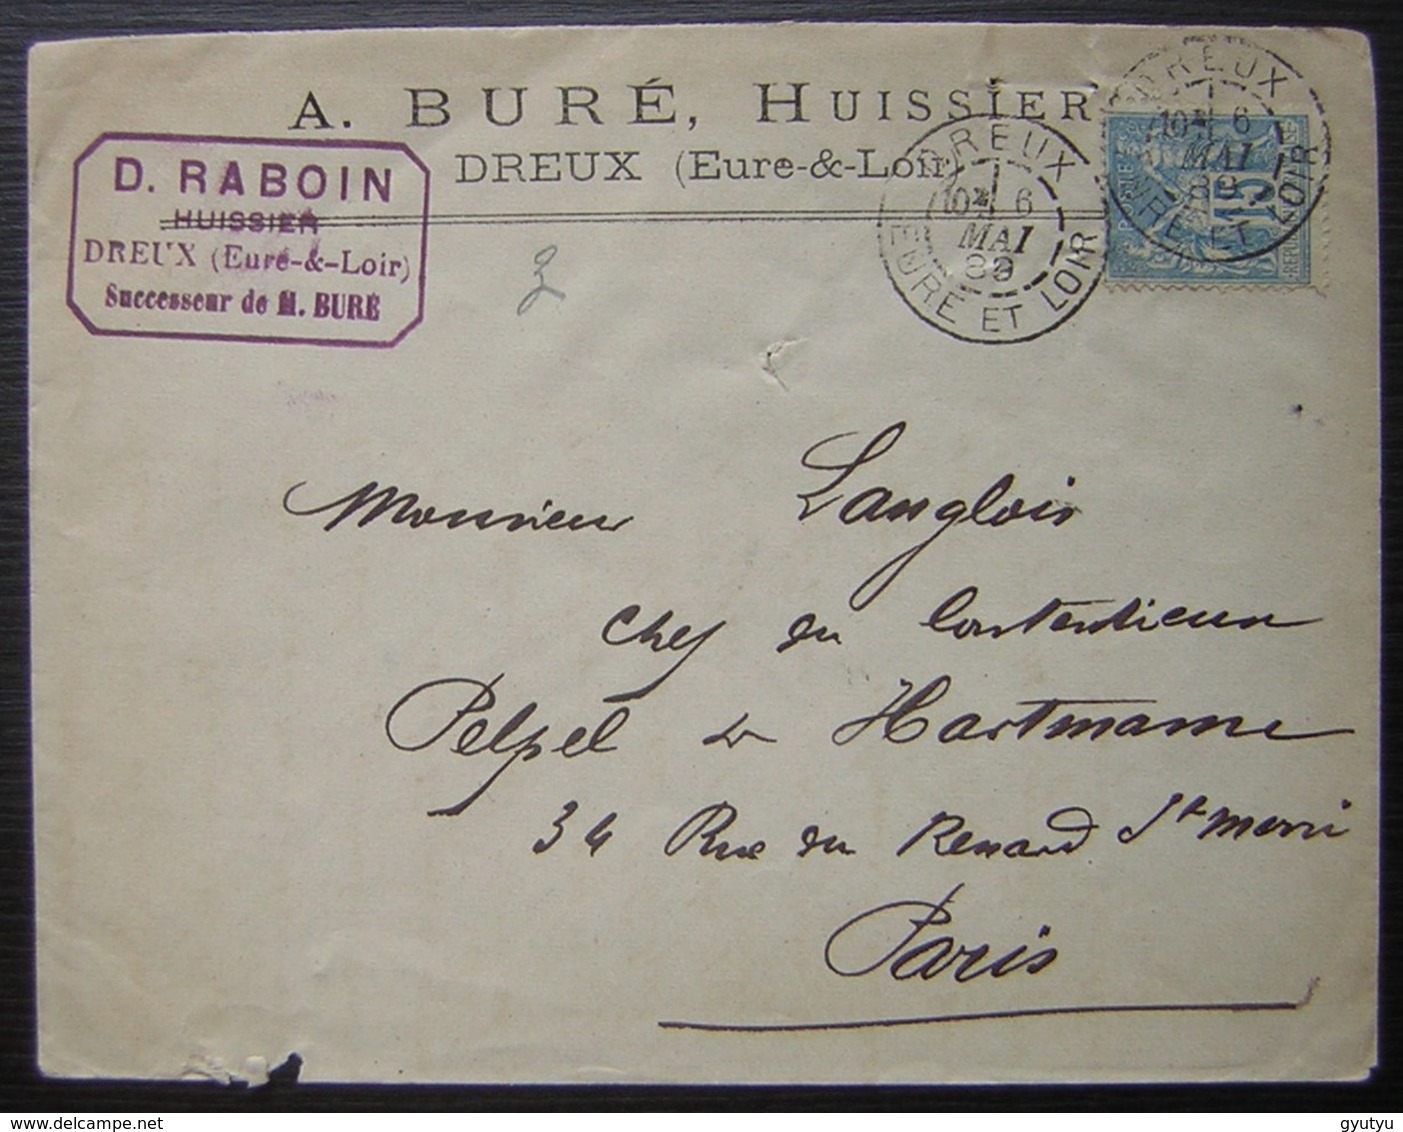 A. BURÉ, HUISSIER
DREUX (Eure-&-Loir)
D. RABOIN
HUISSIER
DREUX (Eure-&-Loir)
Successeur de M. BURÉ
DREUX
6
MAI
89
EURE ET LOIR
DREUX
6
MAI
89
EURE ET LOIR
15
Monsieur Langlois
Chef du Contentieux
Pelpel & Hartmanne
34 Rue du Renard St Merri
Paris
gyutyu